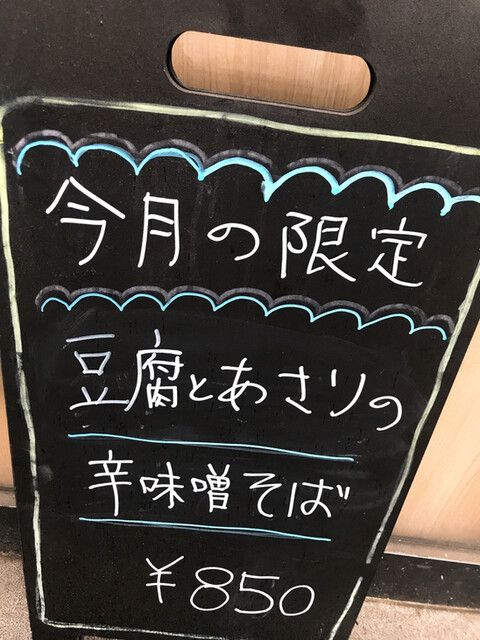 今月の限定
豆腐とあさりの
辛味噌そば
¥850